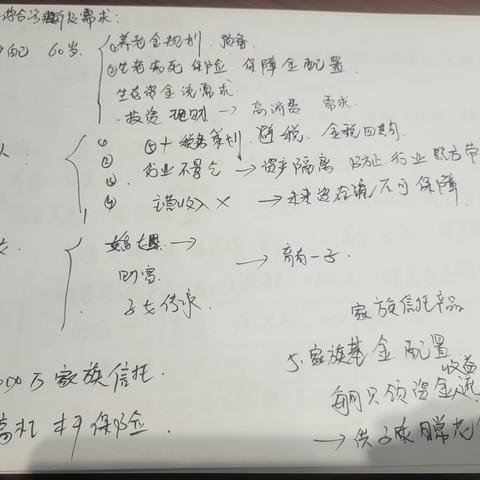 综合分析及需求:
自己 60岁 ①养老金规划 预备
②生老病死保险 保障金配置
生存资金流需求
投资理财 → 高消费 需求
① ⑤+税务筹划 避税 金税四期
②
③ 行业不景气 → 资产隔离 行业
④ 主营收入 × → 未来资金流不可保障
→ 育有一子.
财富
子女传承.
家族信托产品
00万家族信托.
5.家族基金配置
收益
每月只领资金
高杠杆保险.
→ 供子女日常花